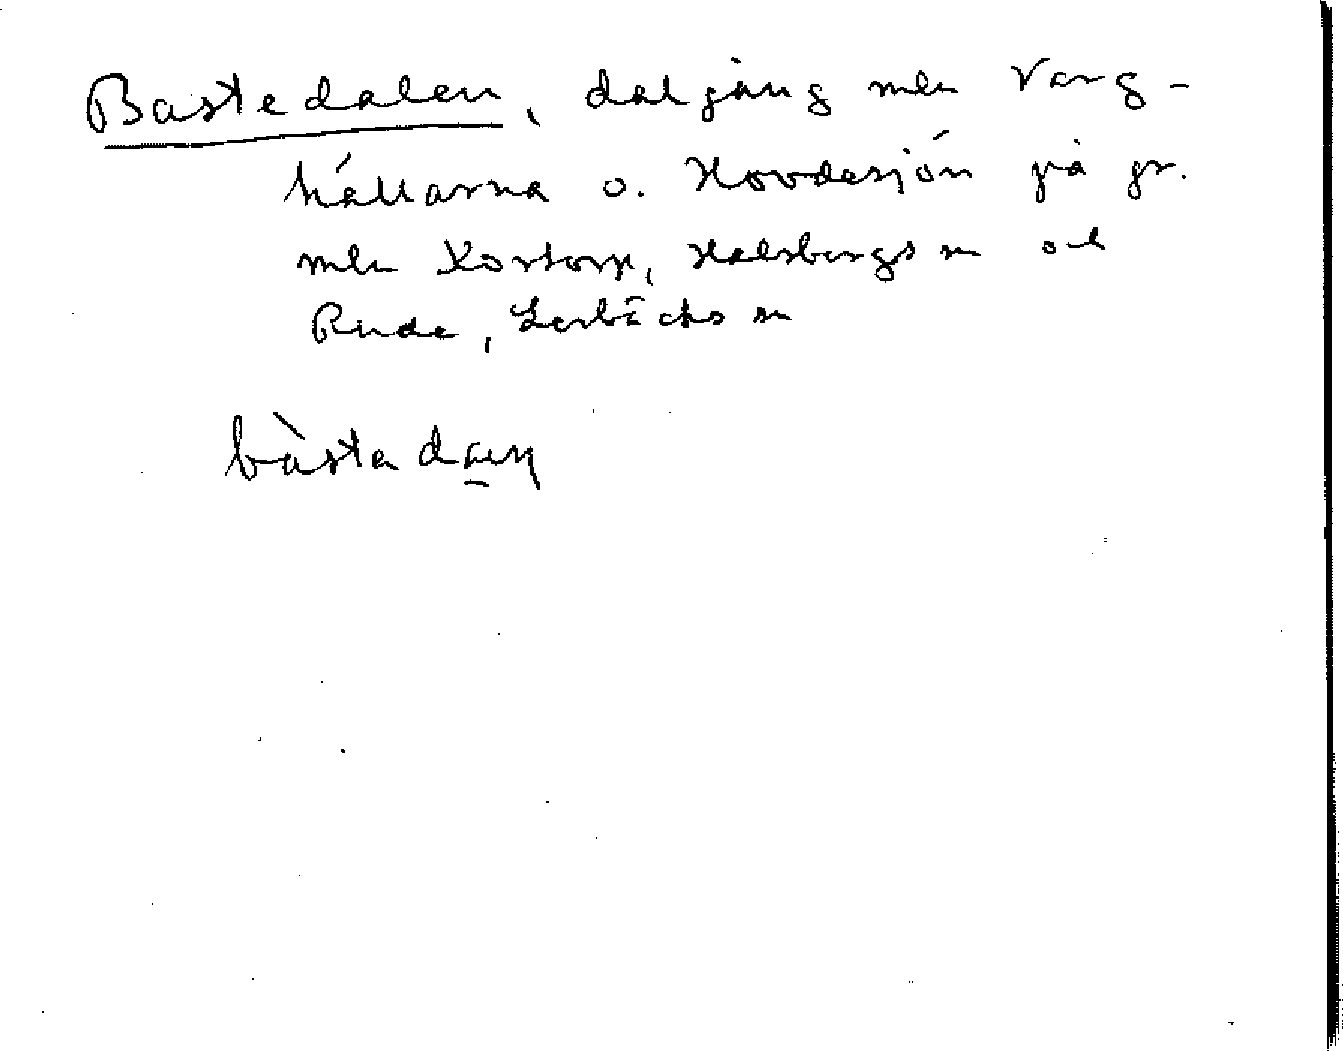 Bastedalen, dalgång mln Varg-
hällarna o. Hovdesjön på gr.
mln Kortorp, Halsbergs sn och
Rude, Lerbäcks sn
bàstedaɐn